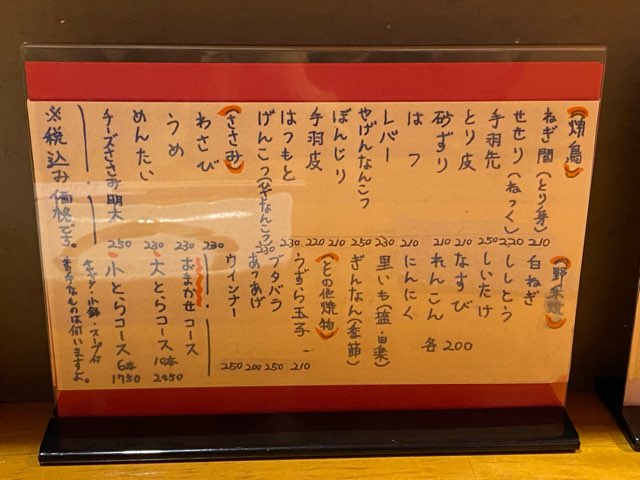 (焼鳥)
ねぎ間(とり身) 210
せせり(ねっく) 220
手羽先 250
とり皮 210
砂ずり 210
はつ 210
レバー 230
やげんなんこつ 250
ぼんじり 210
手羽皮 220
はつもと 230
げんこつ(ひざなんこつ) 230
(ささみ)
わさび 230
うめ 230
めんたい 230
チーズささみ明太 250
※税込み価格です。
(野菜焼)
白ねぎ
ししとう
しいたけ
なすび
れんこん
にんにく
各200
里いも(塩・田楽)
ぎんなん(季節)
(その他焼物)
うずら玉子 210
ブタバラ 250
あつあげ 200
ウインナー 250
おまかせコース
大とらコース 10本
小とらコース 6本 1750
キャベツ・小鉢・スープ付
苦手なものは伺いますよ。